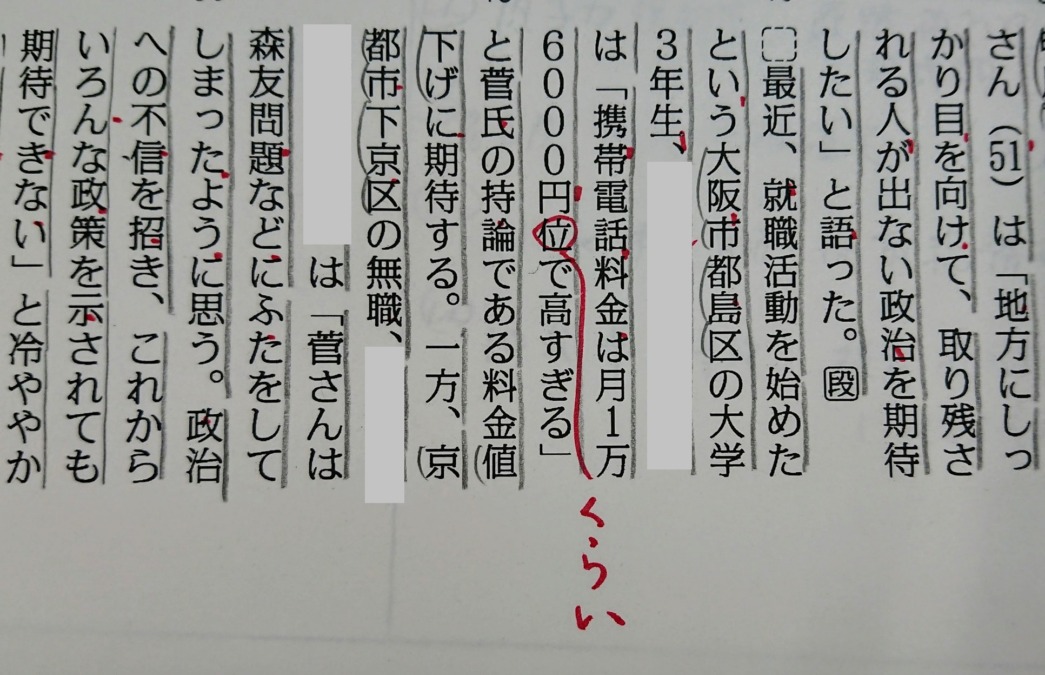 さん（51）は「地方にしっ
かり目を向けて、取り残さ
れる人が出ない政治を期待
したい」と語った。段
最近、就職活動を始めた
という大阪市都島区の大学
3年生、
は「携帯電話料金は月1万
6000円位で高すぎる」
くらい
と菅氏の持論である料金値
下げに期待する。一方、京
都市下京区の無職、
は「菅さんは
森友問題などにふたをして
しまったように思う。政治
への不信を招き、これから
いろんな政策を示されても
期待できない」と冷ややか